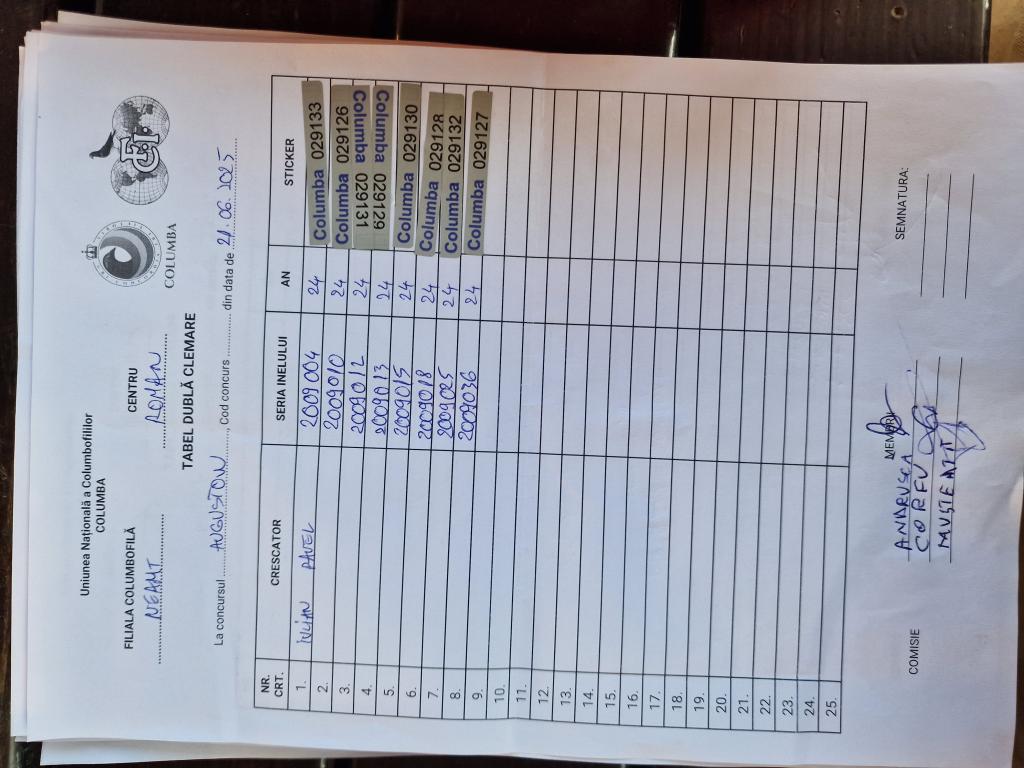 Uniunea Națională a Columbofililor
COLUMBA
COLUMBA
FILIALA COLUMBOFILĂ CENTRU
NEAMT ROMAN
TABEL DUBLĂ CLEMARE
La concursul AUGUSTOW, Cod concurs din data de 21.06.2025
NR. CRT. CRESCATOR SERIA INELULUI AN STICKER
1. IULIAN PAVEL 2009004 24 Columba 029133
2. 2009010 24 Columba 029126
3. 2009012 24 Columba 029131
4. 2009013 24 Columba 029129
5. 2009015 24 Columba 029130
6. 2009018 24 Columba 029128
7. 2009025 24 Columba 029132
8. 2009036 24 Columba 029127
9.
10.
11.
12.
13.
14.
15.
16.
17.
18.
19.
20.
21.
22.
23.
24.
25.
COMISIE MEMBRII SEMNATURA:
ANDRUSCA
CORFU
MUSTEATA